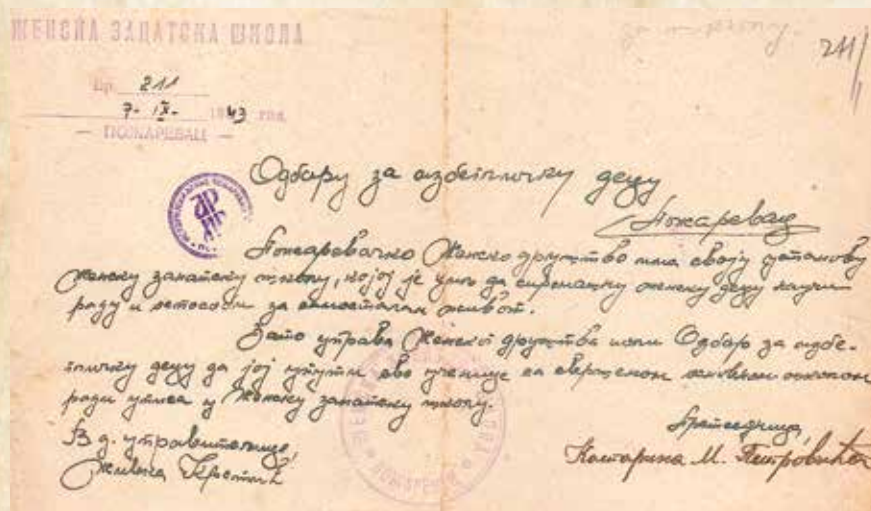 ЖЕНСКА ЗАНАТСКА ШКОЛА
за школу.
211
Бр. 211
7-IX- 1943 год.
— ПОЖАРЕВАЦ —
Одбору за избегличку децу
Пожаревац
Пожаревачко Женско друштво има своју установу
Женску занатску школу, којој је циљ да сиромашну женску децу научи
раду и оспособи за самосталан живот.
Зато управа Женског друштва моли Одбор за избе-
гличку децу да јој упути све ученице са свршеном основном школом
ради уписа у Женску занатску школу.
В д. управитељице,
Живка Крстић
Претседница,
Катарина М. Петровића